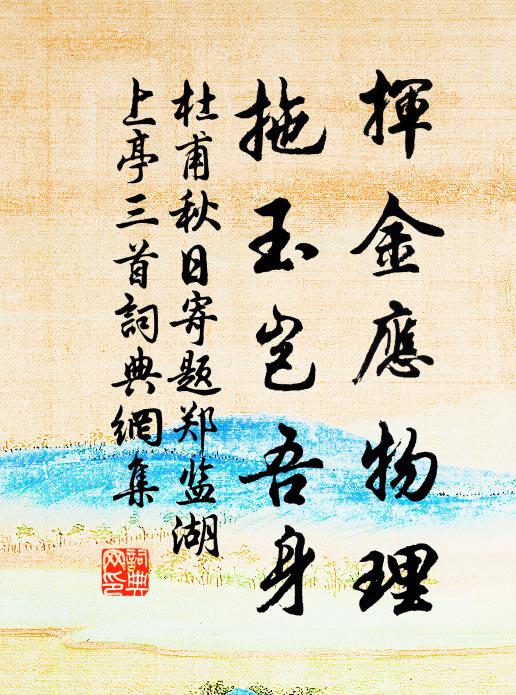 揮金應物理
拖玉豈吾身
杜甫秋日寄题郑监湖
上亭三首詞典網集
詞典
网印